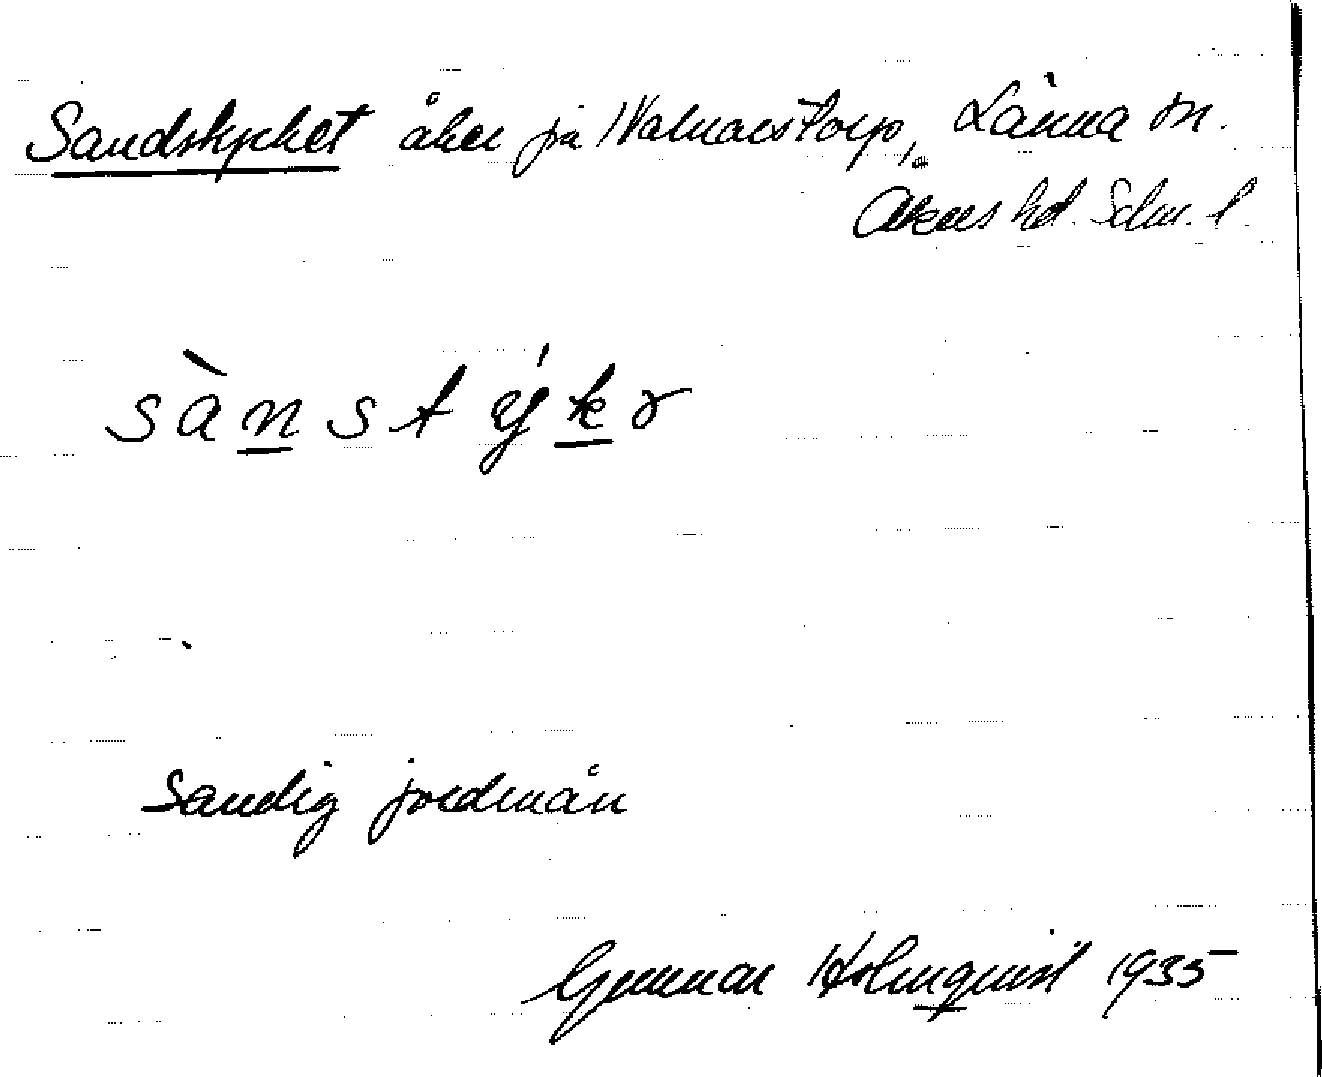 Sandstycket åker på Valmarstorp, Länna sn.
Åkers hd. Sdm. l.
sànstýkə
Sandig jordmån
Gunnar Holmquist 1935